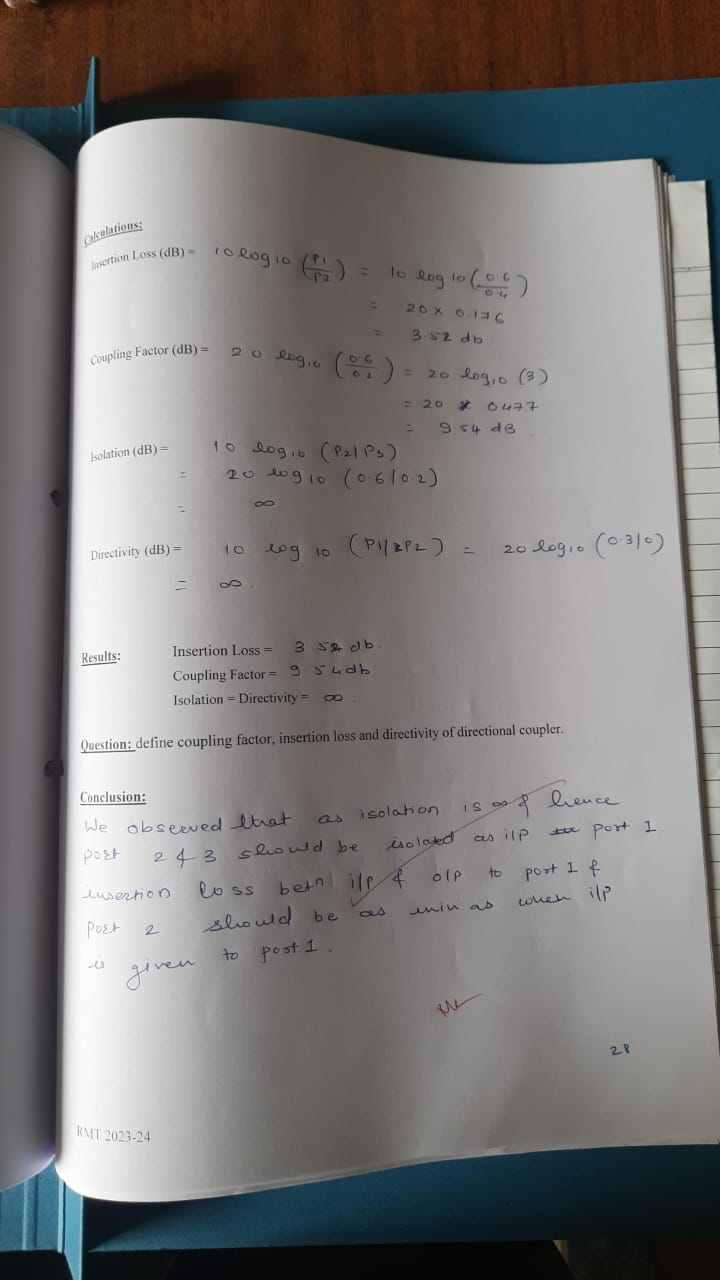 Calculations:
Insertion Loss (dB) = 10 log10 (P1/P2) = 10 log10 (0.6/0.4)
= 20 x 0.176
= 3.52 db
Coupling Factor (dB) = 20 log10 (0.6/0.2) = 20 log10 (3)
= 20 * 0477
= 9.54 dB
Isolation (dB) = 10 log10 (P2/P3)
= 20 log10 (0.6/0.2)
= ∞
Directivity (dB) = 10 log10 (P1/P2) = 20 log10 (0.3/0)
= ∞.
Results: Insertion Loss = 3.52 db.
Coupling Factor = 9.54db
Isolation = Directivity = ∞.
Question: define coupling factor, insertion loss and directivity of directional coupler.
Conclusion:
We observed that as isolation is ∞ & hence
port 2 & 3 should be isolated as i/p port 1.
insertion loss betn i/p & o/p to port 1 &
Port 2 should be as min as when i/p
is given to port 1.
28
RMT 2023-24